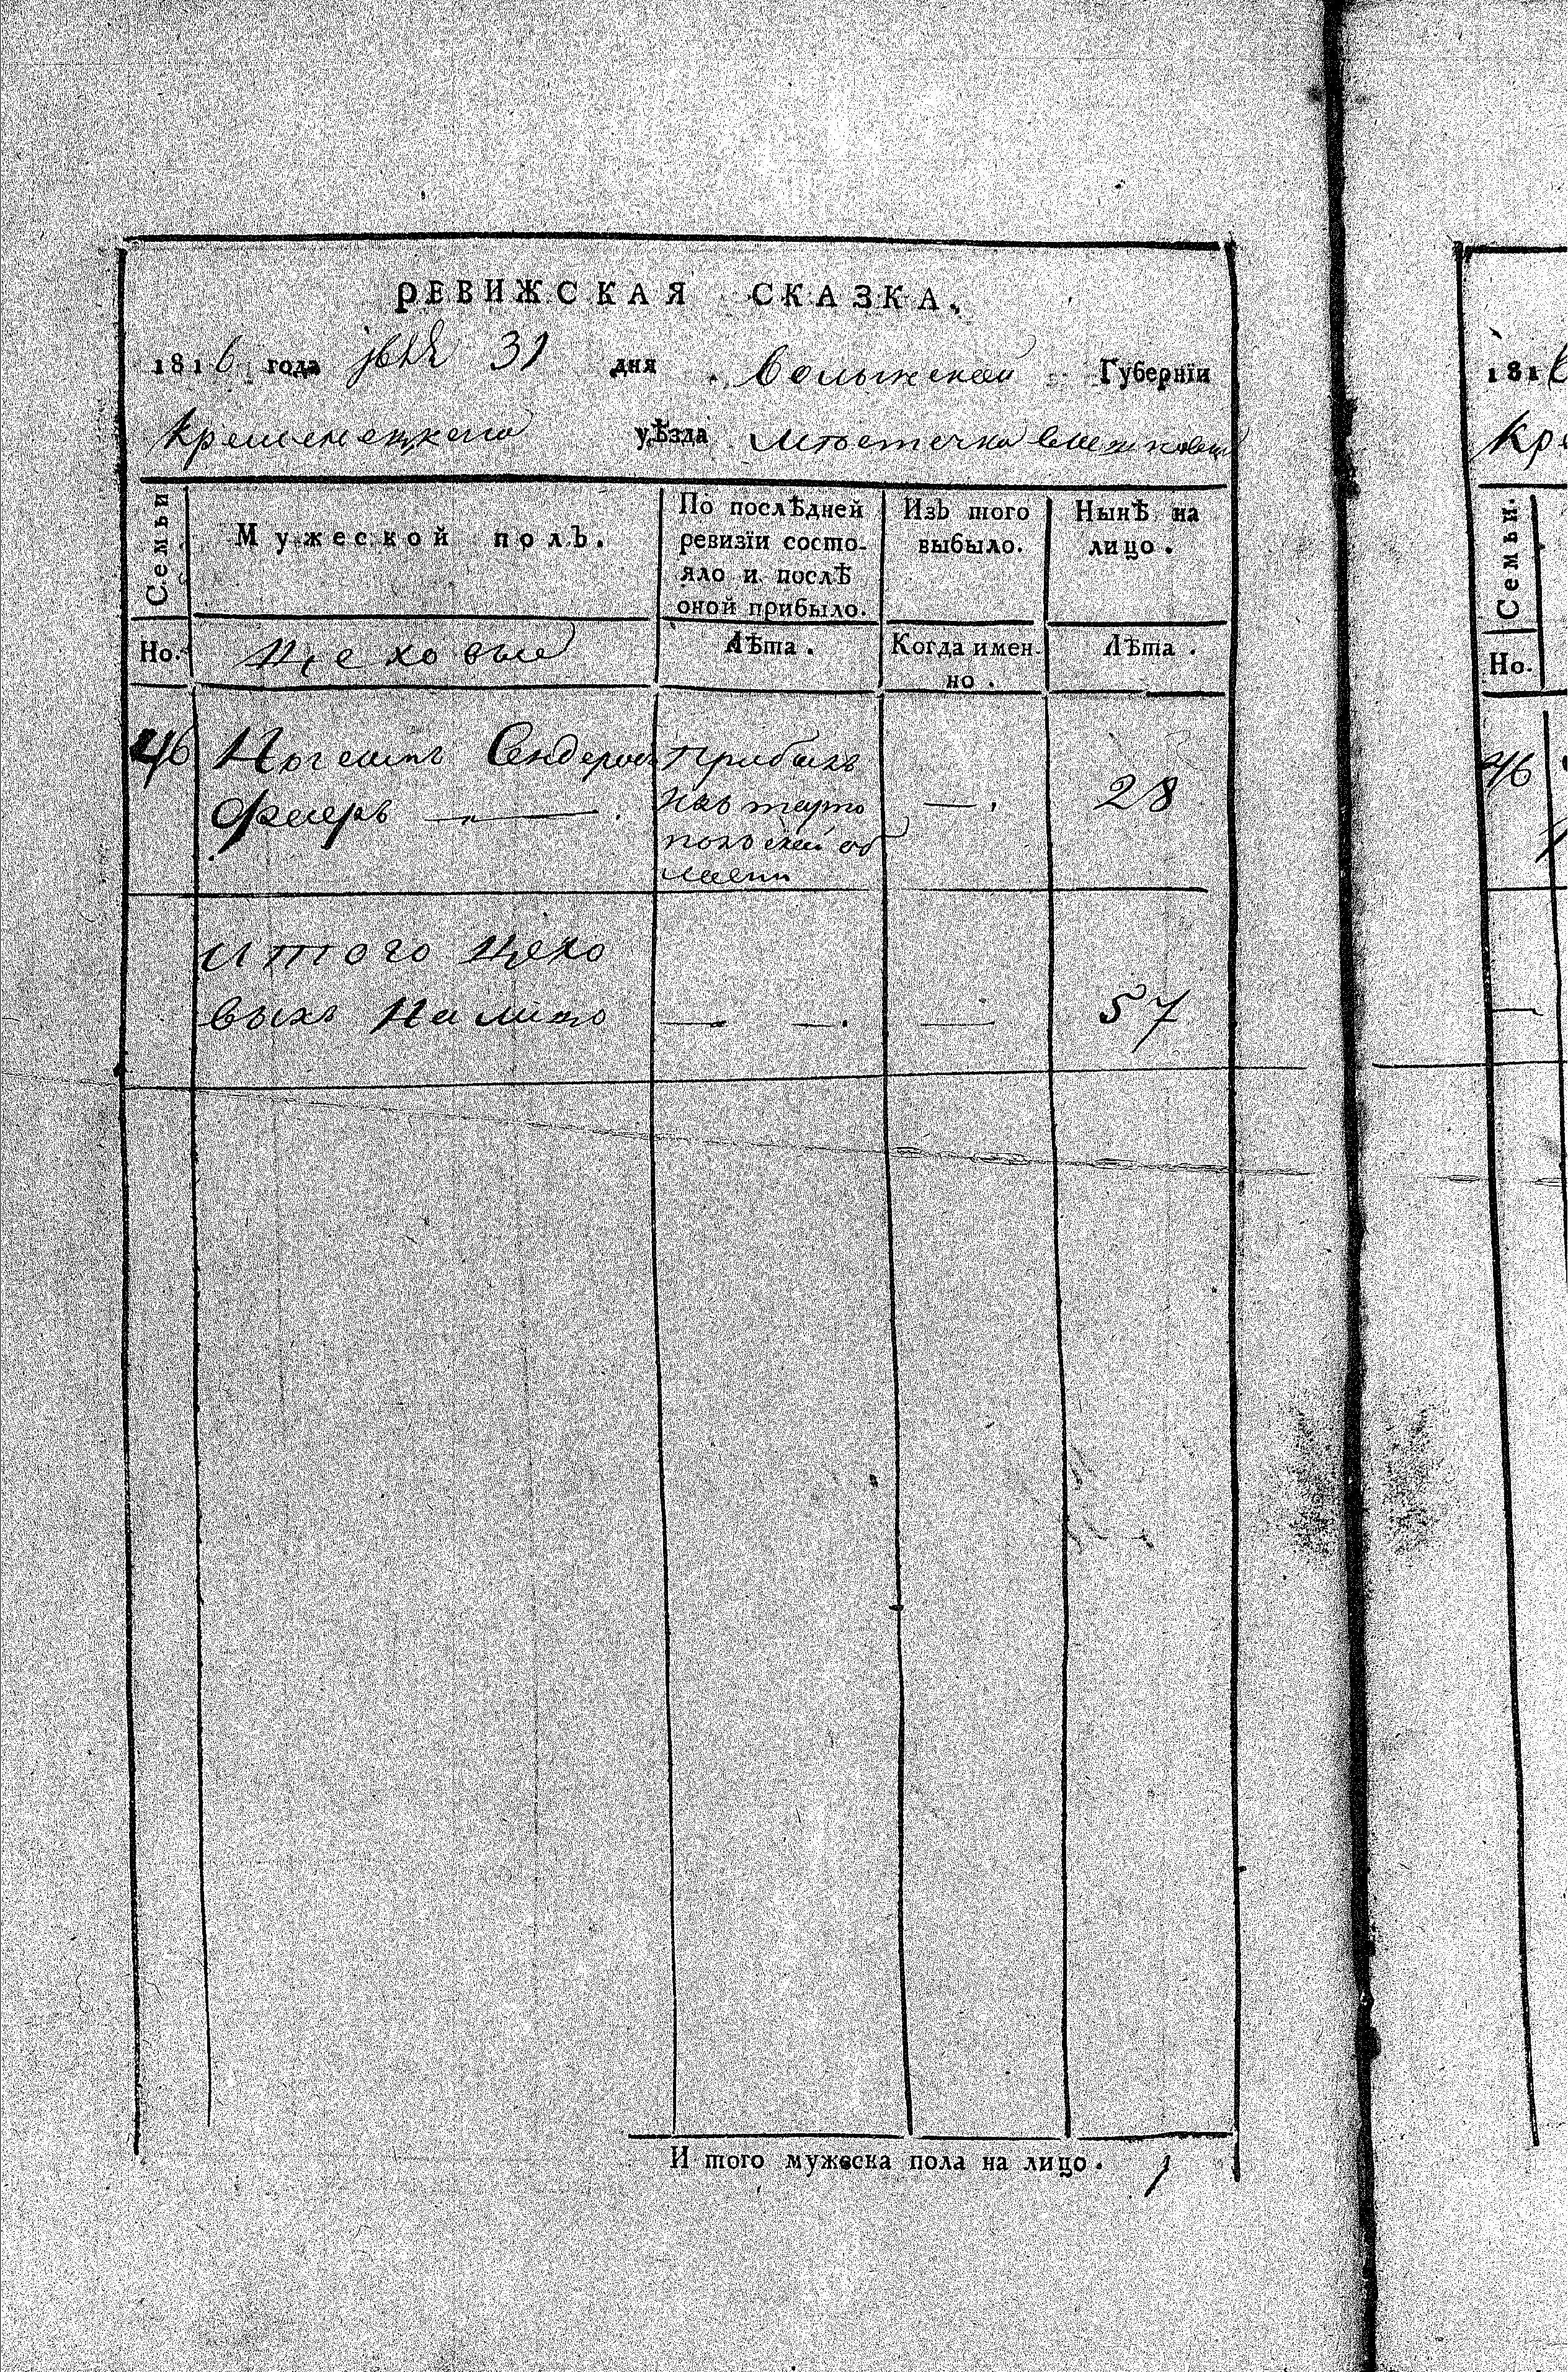 РЕВИЖСКАЯ СКАЗКА.
1816 года 31 дня Волынской Губернїи
Кременецкаго уѣзда Местечка
Семьи
Мужеской полъ.
По послѣдней ревизїи состо-
яло и послѣ
оной прибыло.
Изъ того выбыло.
Нынѣ на лицо.
Но.
Цеховые
Лѣта.
Когда имен-
но.
Лѣта.
46 Сендеровъ Прибылъ
Фаеръ — изъ тарно — 28
польской об
ласти
Итого цехо
выхъ На лицо — — — 57
И того мужеска пола на лицо. 1
1816
Кре
Семьи.
Но.
46